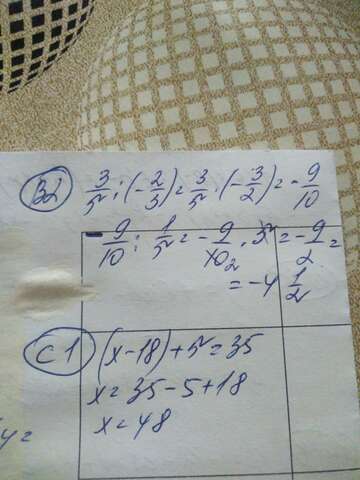 B2 3/5 : (-2/3) = 3/5 · (-3/2) = -9/10
-9/10 : 1/5 = -9/10 2 · 5 = -9/2 =
= -4 1/2
C1 (x-18)+5=35
x=35-5+18
x=48
y=